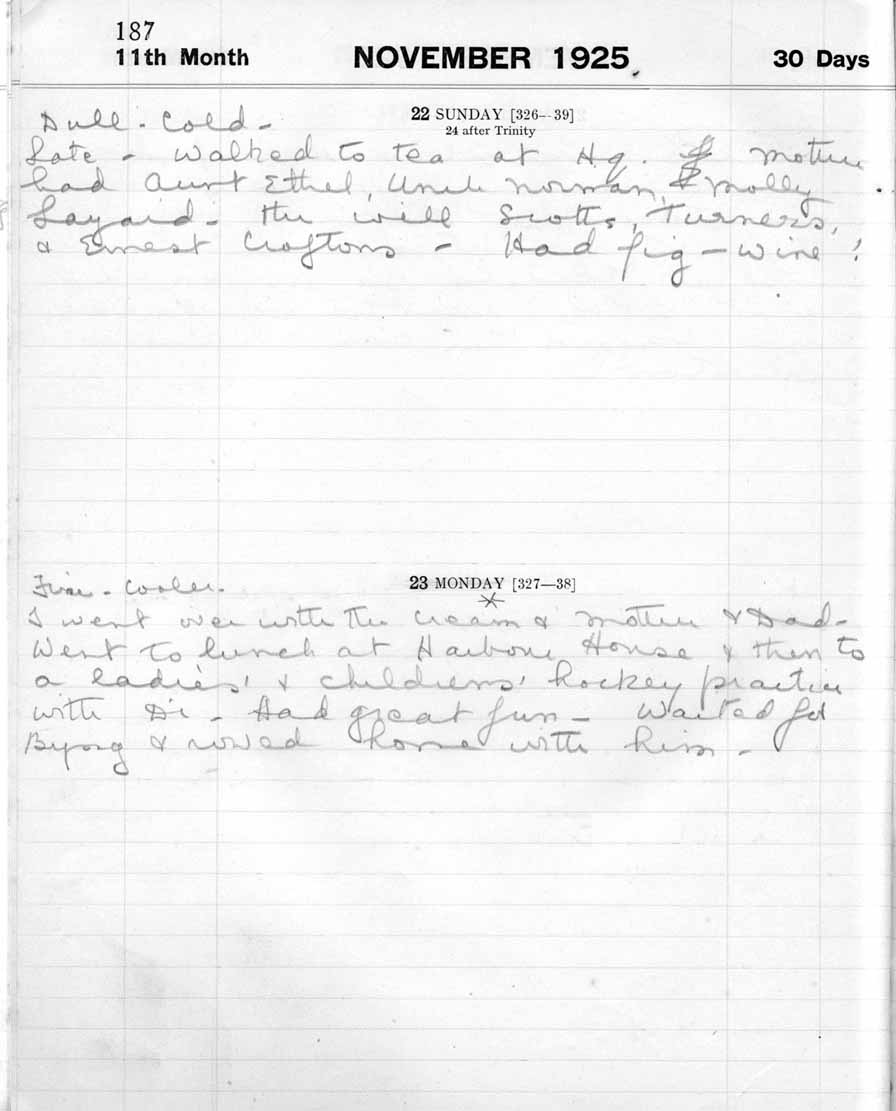 187
11th Month NOVEMBER 1925 30 Days
22 SUNDAY [326—39]
24 after Trinity
Dull - Cold -
Late - Walked to tea at Hq. Mother
had Aunt Ethel, Uncle Norman, & Molly
Layard - the will Scotts, Turners,
& Ernest Croftons - Had fig - wine !
23 MONDAY [327—38]
Fine - cooler.
I went over with the cream & Mother & Dad -
Went to lunch at Harbour House & then to
a ladies' & childrens' hockey practice
with Di - Had great fun - Waited for
& rowed home with him -